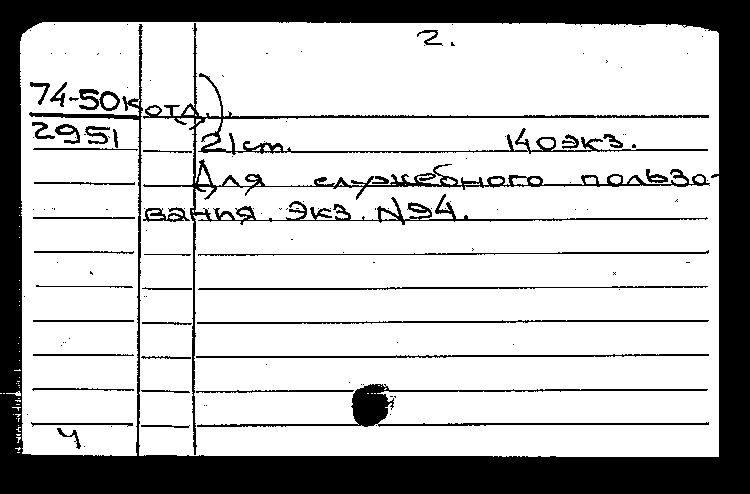 2.
74-50к отд.)
2951
21 ст. 140 экз.
Для служебного пользо-
вания. Экз. №94.
Ч